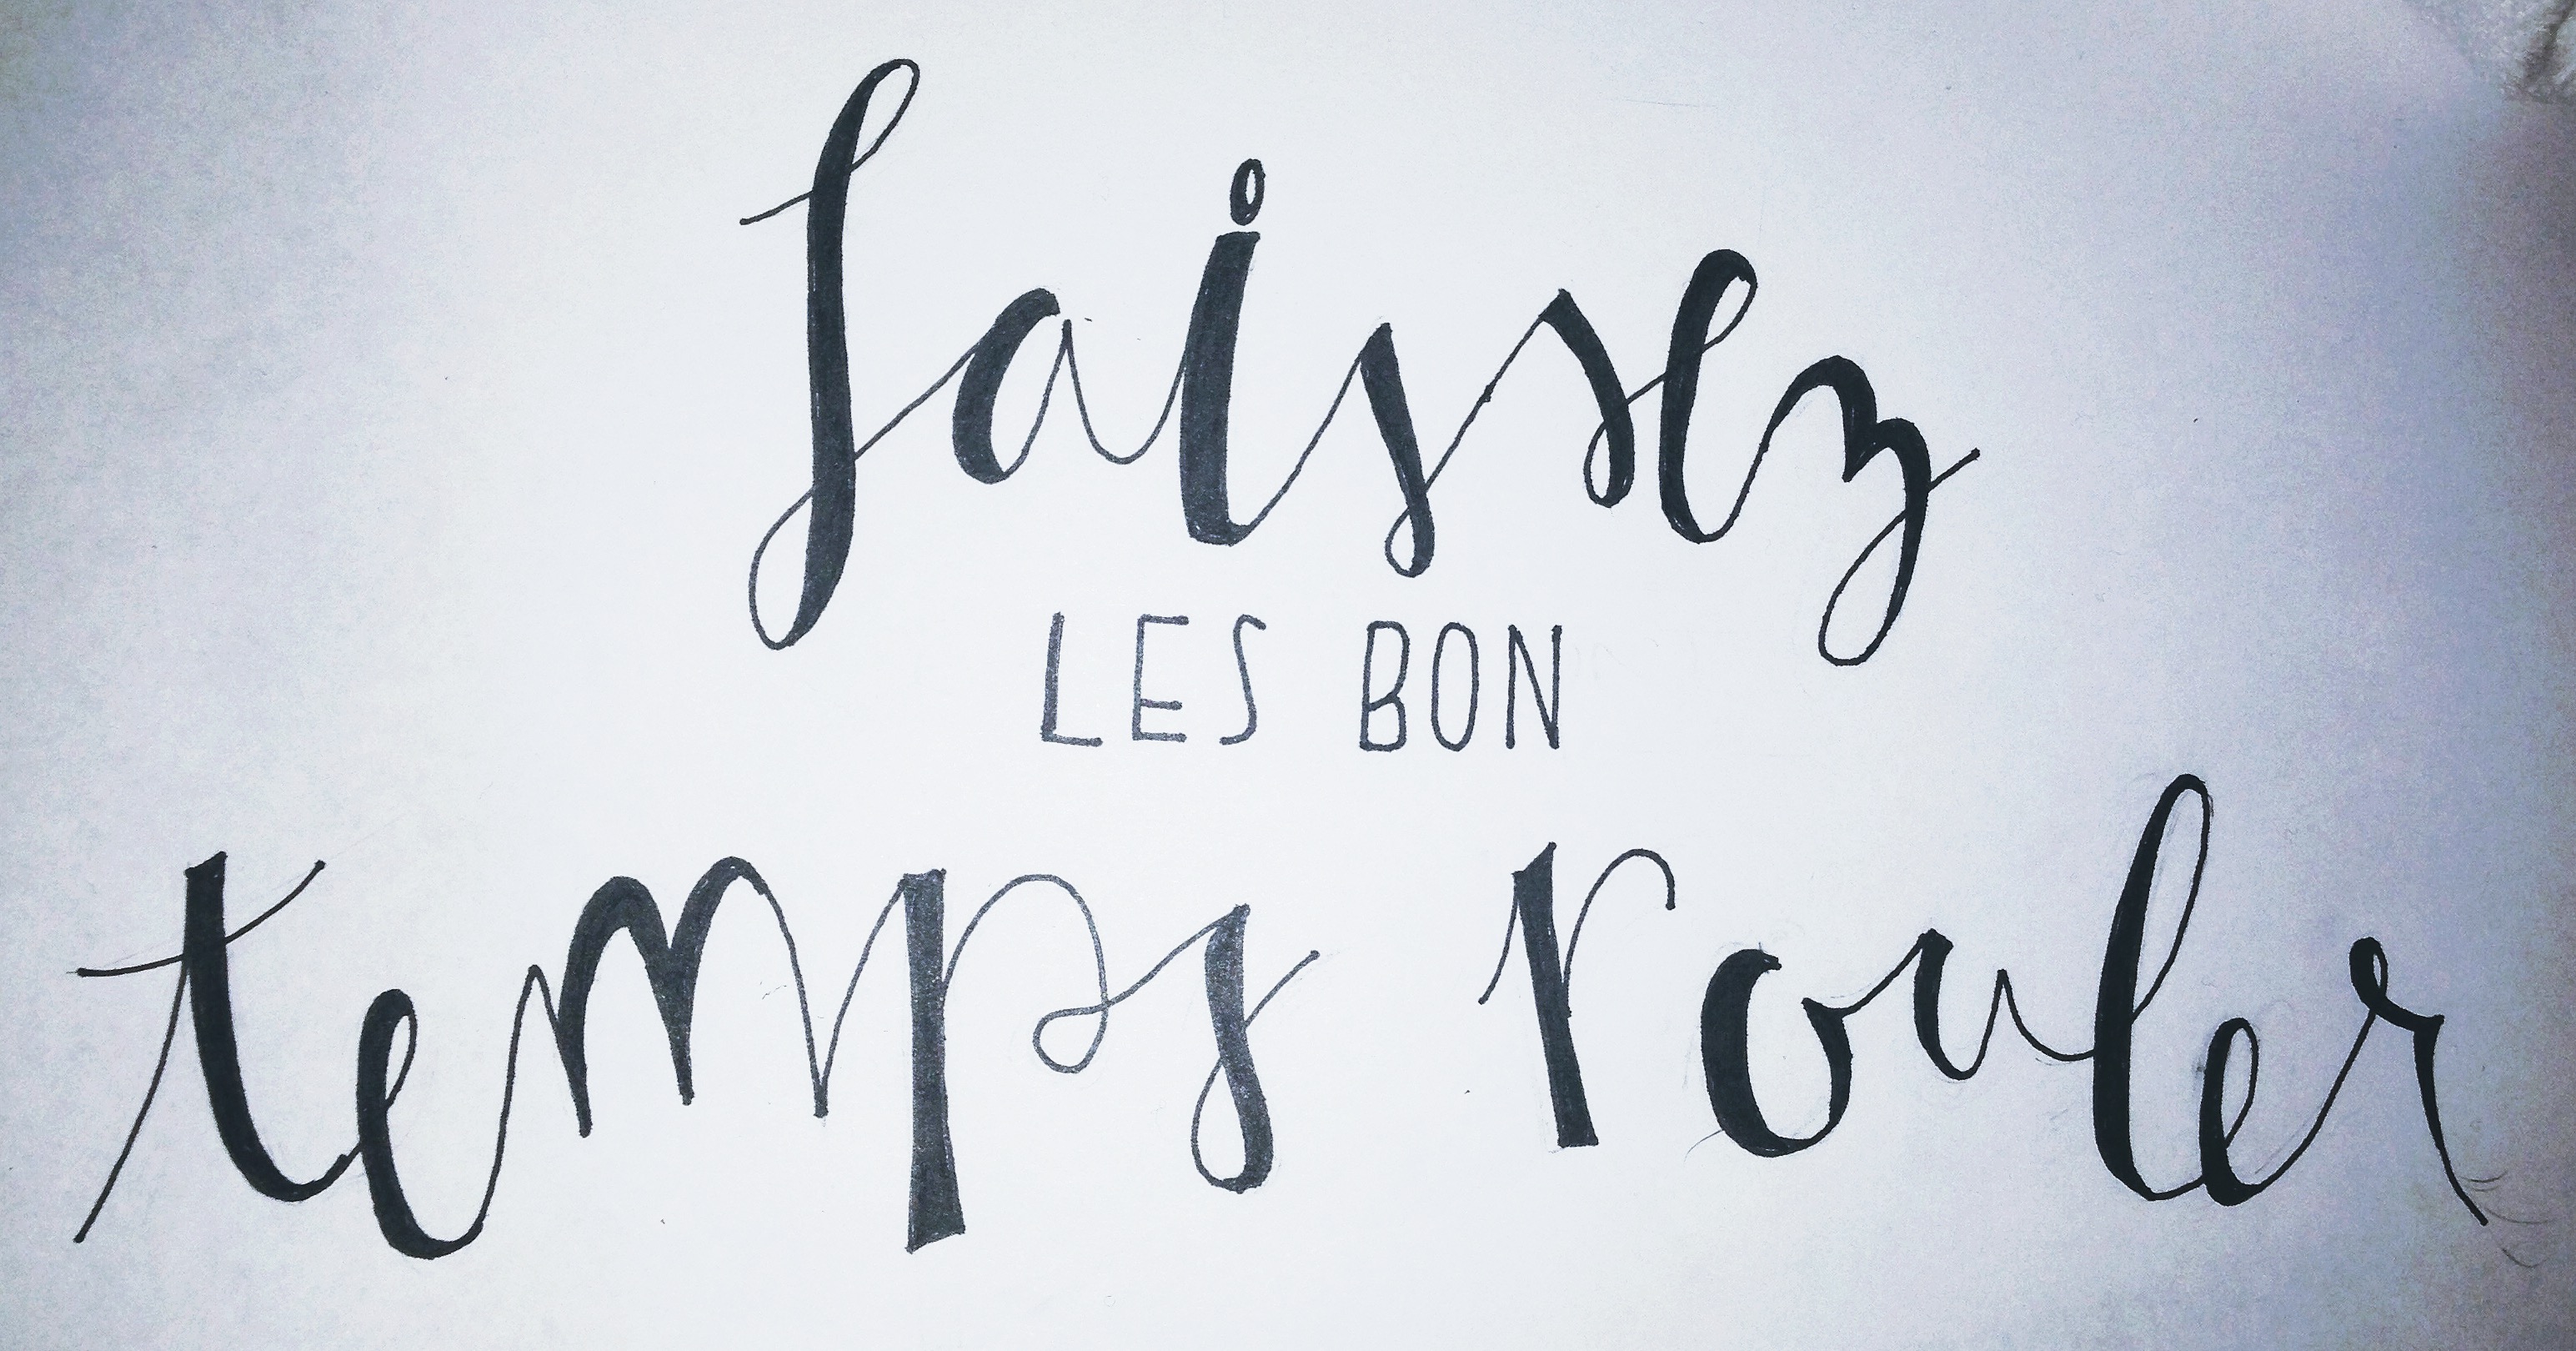 Laissez
LES BON
temps rouler